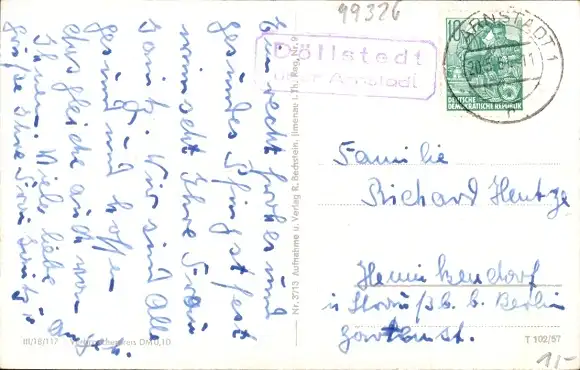 99326
Döllstedt
über Arnstadt
10
DEUTSCHE
DEMOKRATISCHE REPUBLIK
ARNSTADT 1
Ein recht frohes und
gesundes Pfingstfest
wünscht Ihre Frau
Wir sind alle
gesund und hoffen
das gleiche auch von
Ihnen. Viele liebe
Grüße Ihre Frau
Nr. 3/15 Aufnahme u. Verlag R. Bechstein, Ilmenau i. Th. Reg. Nr. 9
Familie
Richard Hentze
Hennickendorf
ü Strausb. b. Berlin
Gartenst.
III/18/117
DM 0,10
T 102/57
1,-